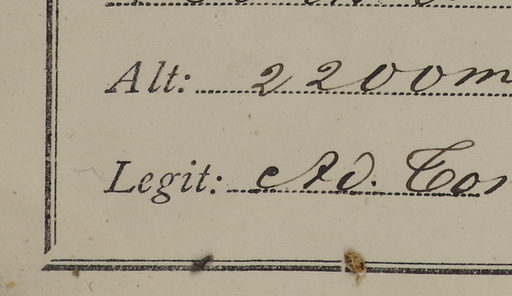 Alt: 2200m
Legit: Ad.